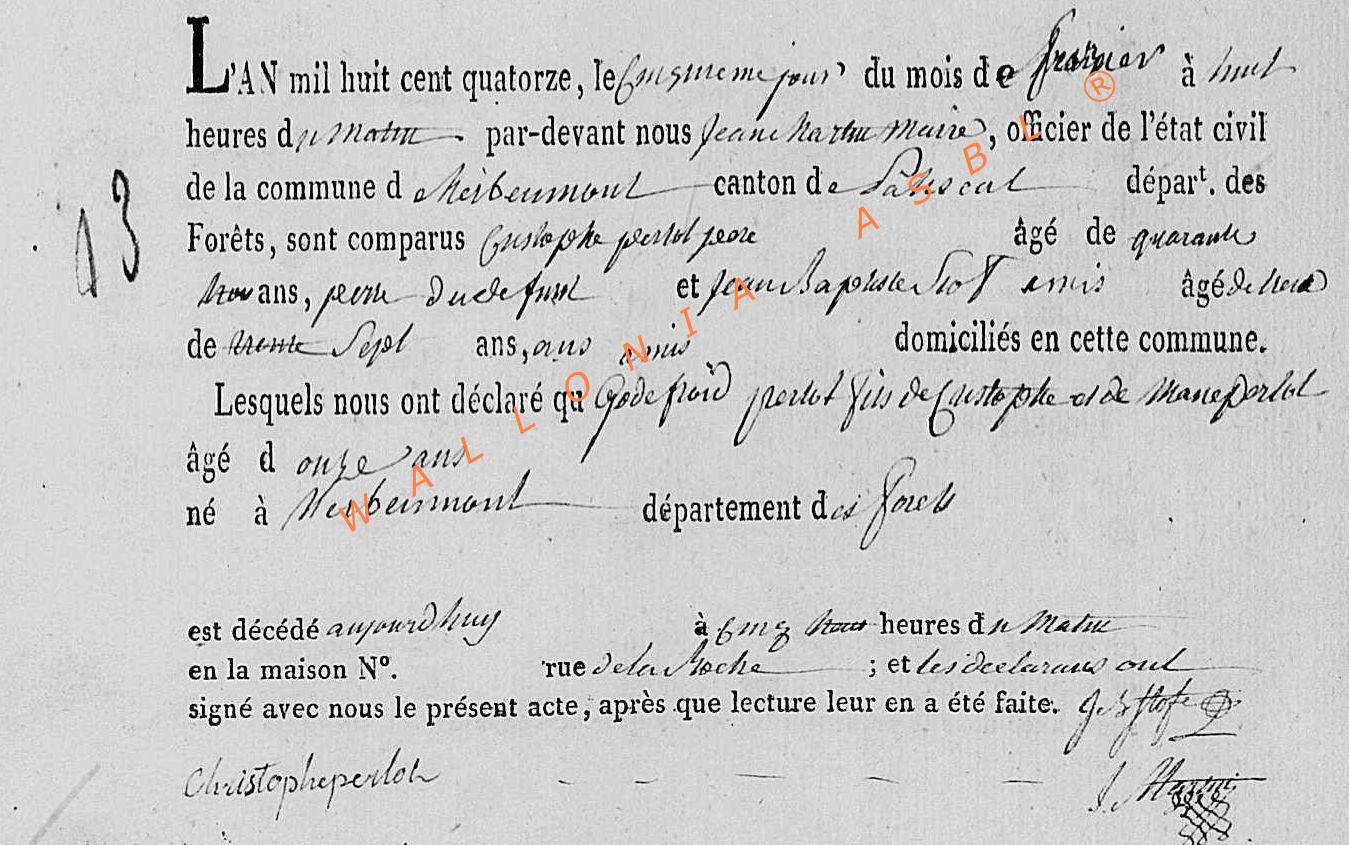 L'AN mil huit cent quatorze, le Cinquieme jour du mois de fevrier à huit
heures du Matin par-devant nous Jean Martin Maire, officier de l'état civil
de la commune d'herbeumont canton de Paliseul départ. des
Forêts, sont comparus Cristophe perlot pere âgé de quarante
ans, perre du defunt et Jean Baptiste Stof amis âgé de
de trente Sept ans, aus amis domiciliés en cette commune.
Lesquels nous ont déclaré qu Godefroid perlot fils de Cristophe et de Marie perlot
âgé d onze ans
né à Herbeumont département des forets
13
est décédé aujourdhuy à Cinq heures du Matin
en la maison N°. rue de la Roche ; et les declarans ont
signé avec nous le présent acte, après que lecture leur en a été faite. J B Stofe
Christophe perlot
J Martin
WALLONIA ASBL ®